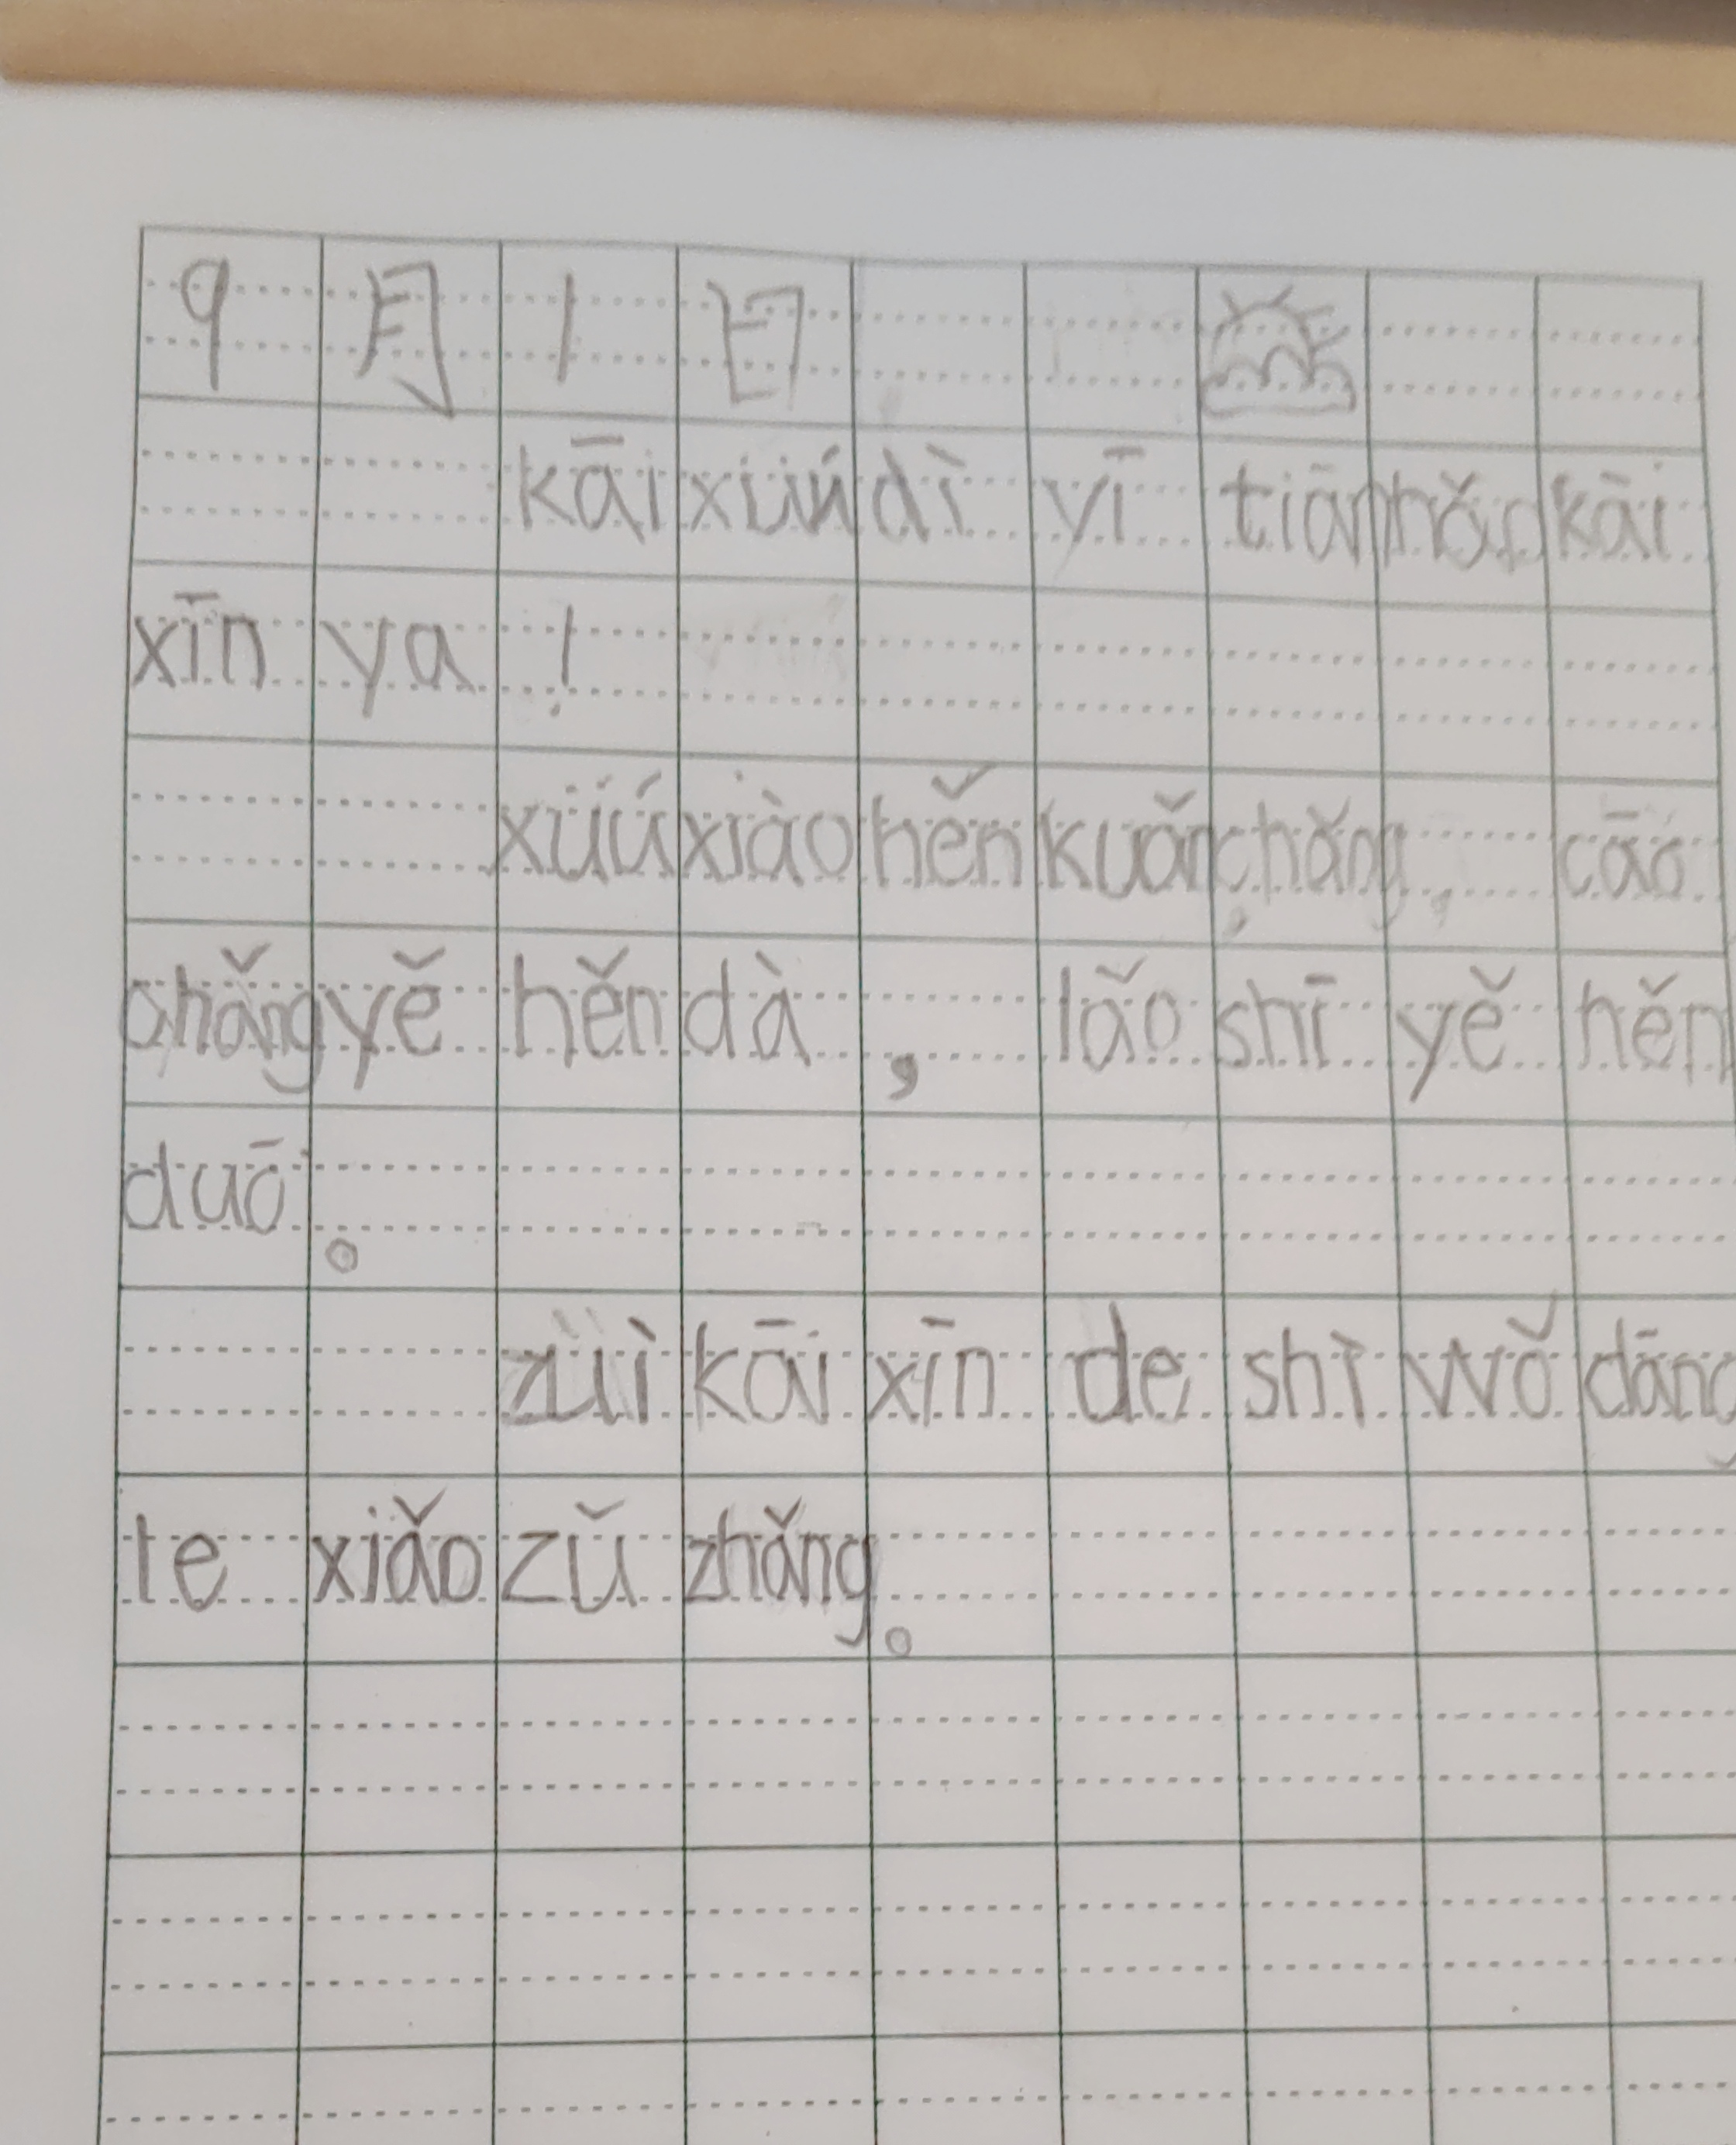 9月1日
kāi xüń dì yī tiān hǎo kāi
xīn ya!
xüú xiào hěn kuǎn chǎng, cāo
chǎng yě hěn dà, lǎo shī yě hěn
duō。
zuì kāi xīn de shì wǒ dāng
le xiǎo zǔ zhǎng。